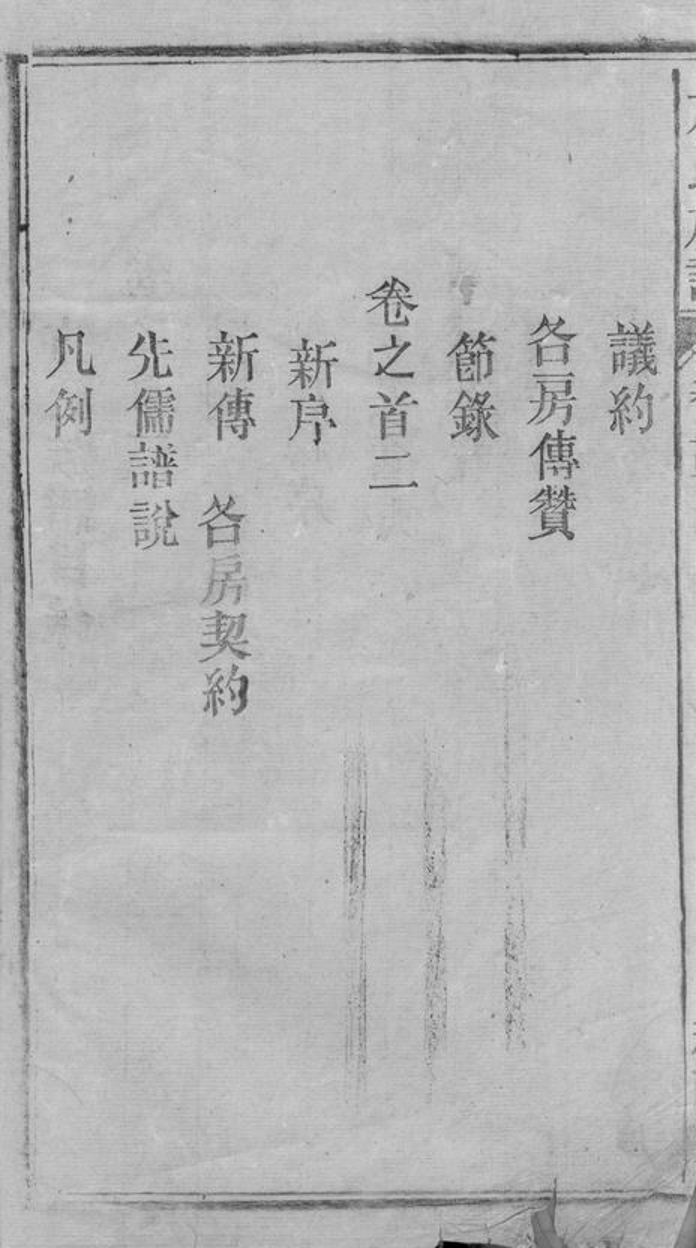 議約
各房傳贊
節錄
卷之首二
新序
新傳　各房契約
先儒譜說
凡例